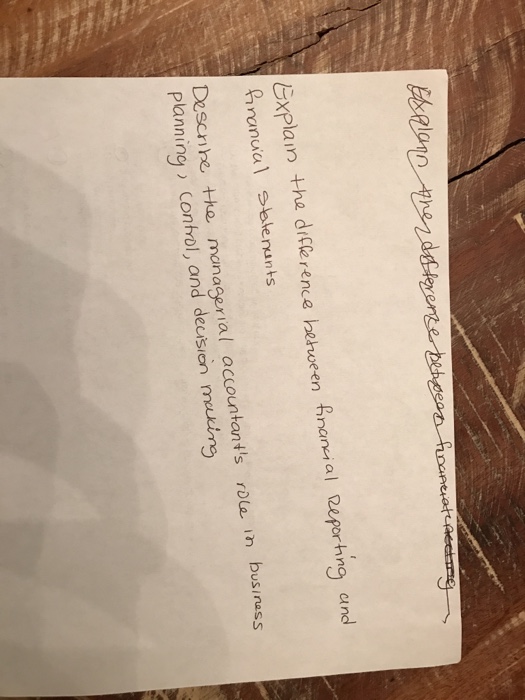 Explain the difference between financial
Explain the difference between financial Reporting and
financial statements
Describe the managerial accountant's role in business
planning, control, and decision making